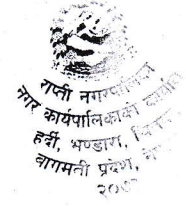 राप्ती नगरपालिका
नगर कार्यपालिकाको कार्यालय
हर्दी, भण्डारा, चितवन
बागमती प्रदेश, नेपाल